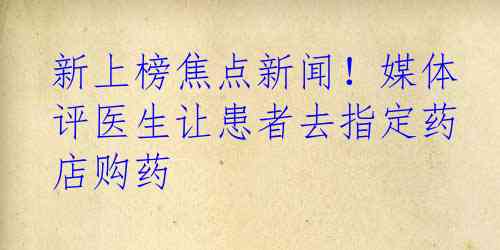 新上榜焦点新闻！媒体
评医生让患者去指定药
店购药